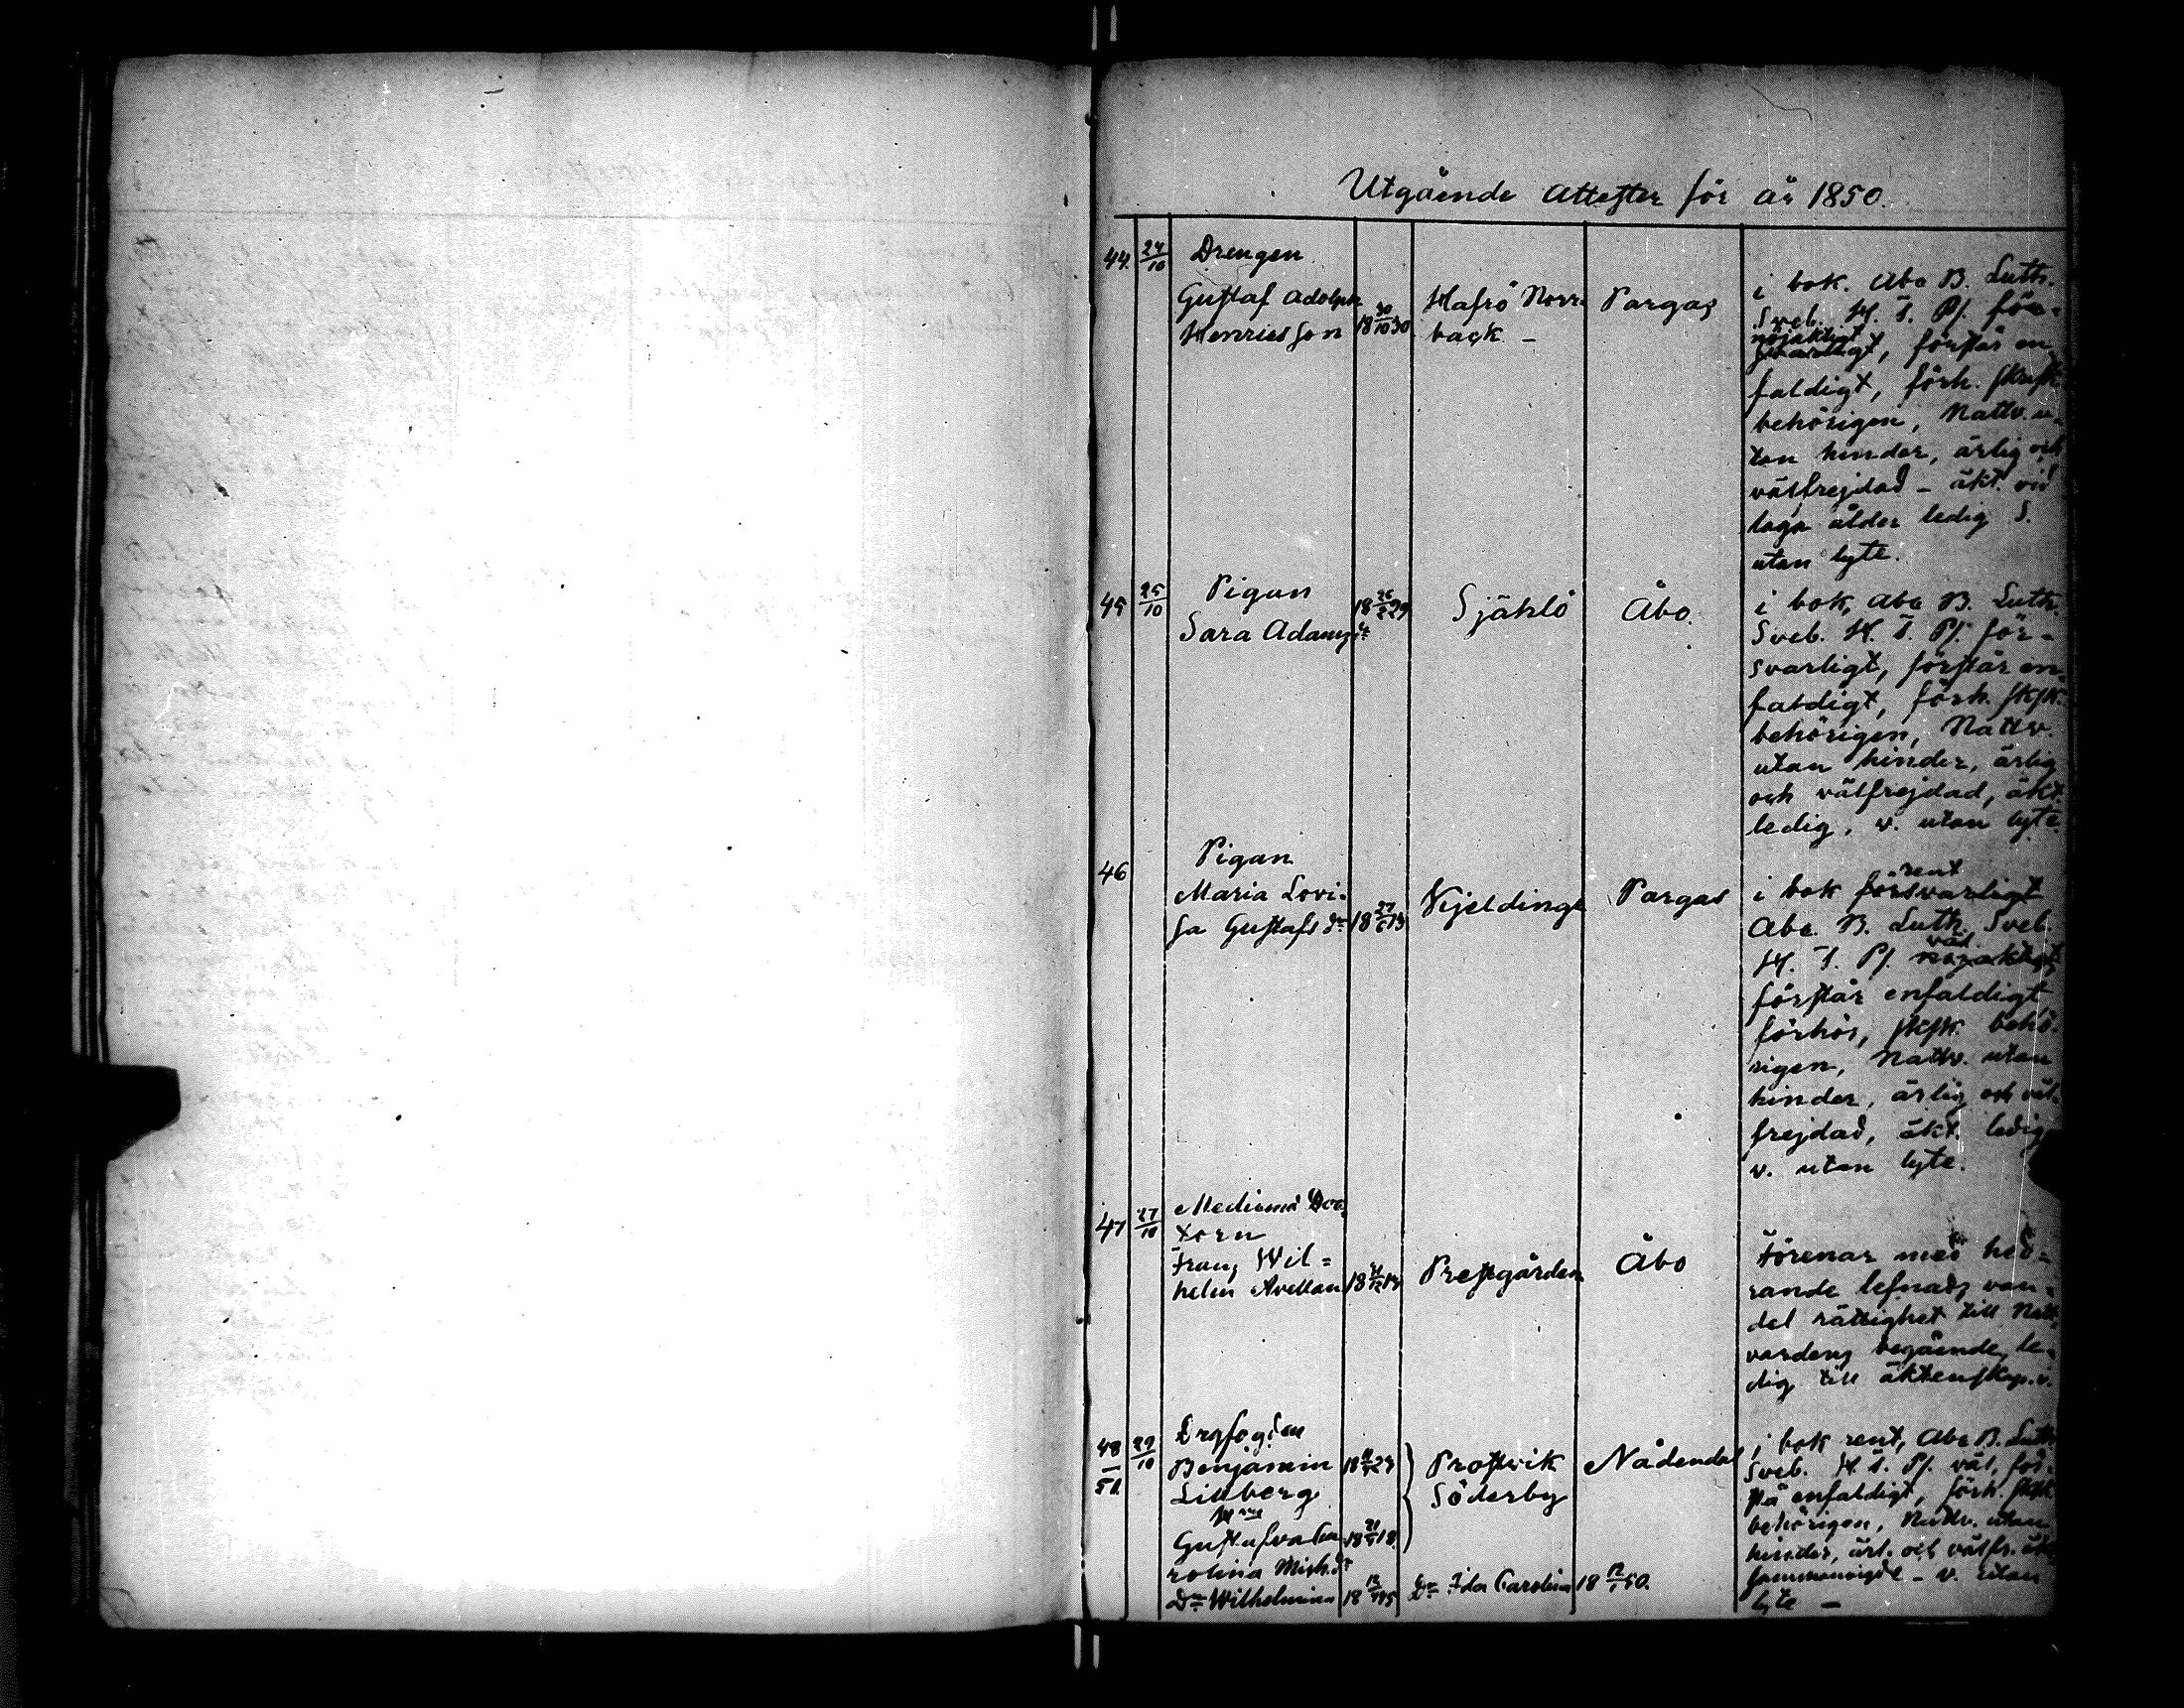 Utgående Attester för år 1850.
44. 24/10 Drengen
Gustaf Adolph
Henricsson
18 30/10 30
Hafrö Norr-
back. -
Pargas
i bok. Abc B. Luth.
Sveb. H. T. Ps. för-
nöjaktigt
svarligt, förstår en
faldigt, förh. skrift
behörigen, Nattv. u-
tan hinder, ärlig och
välfrejdad - äkt. vid
laga ålder ledig S.
utan lyte.
45 25/10 Pigan
Sara Adamsdr
Själö
Åbo.
i bok, Abc B. Luth.
Sveb. H. T. Ps. för-
svarligt, förstår en-
faldigt, förh. skfsk.
behörigen, Nattv.
utan hinder, ärlig
och välfrejdad, äkt.
ledig, v. utan lyte.
46
Pigan
Maria Lovi-
sa Gustafsdr
Kjeldinge
Pargas
rent
i bok försvarligt
Abc. B. Luth. Sveb.
väl
H. T. Ps. nöjaktigt
förstår enfaldigt
förhör, skfsk. behö-
rigen, Nattv. utan
hinder, ärlig och väl-
frejdad, äkt. ledig
v. utan lyte.
47 27/10 Medicine Doc-
torn
Frans Wil=
helm Avellan
Prestgården
Åbo
Förenar med hed-
rande lefnads van-
del rättighet till Natt-
vardens begående, le-
dig till äktenskap. v.
48-51. 29/10
Benjamin
Lillberg
Hu
Gustafva Ca
rolina Mich.dr
Dr Wilhelmina
Prostvik
Söderby
Nådendal
Dr Ida Carolina 18 50.
i bok rent, Abc B. Luth
Sveb. H. T. Ps. väl, för-
stå enfaldigt, förh. skfsk
behörigen, Nattv. utan
hinder, ärl. och välfr. äkt
sammanvigde - v. utan
lyte -